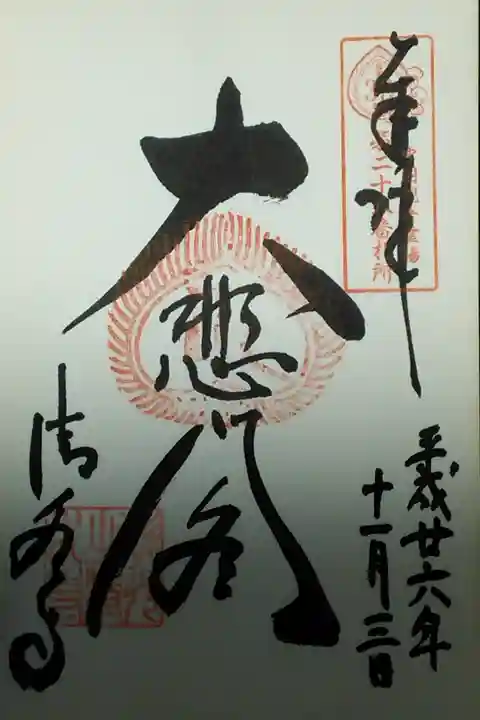 奉拝
大悲閣
清水寺
平成廿六年
十一月三日